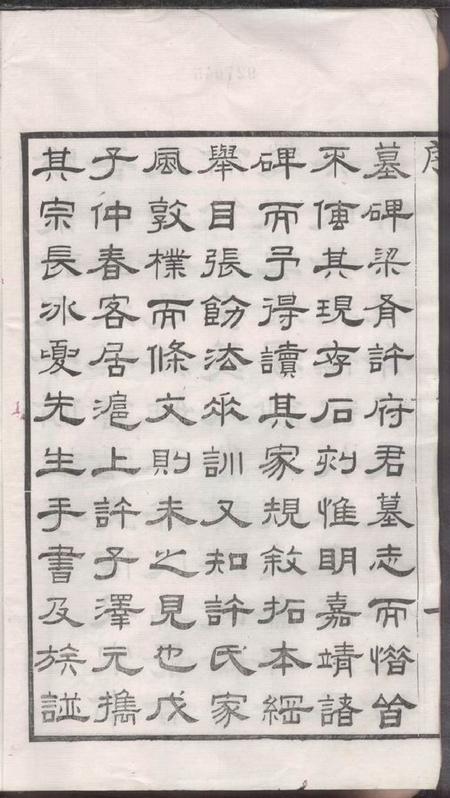 序
墓碑梁胥許府君墓志而憯皆
不傳其現存石刻惟明嘉靖諸
碑而予得讀其家規敘拓本綱
舉目張飭法垂訓又知許氏家
風敦樸而條文則未之見也戊
子仲春客居滬上許子澤元攜
其宗長冰夔先生手書及族譜
一